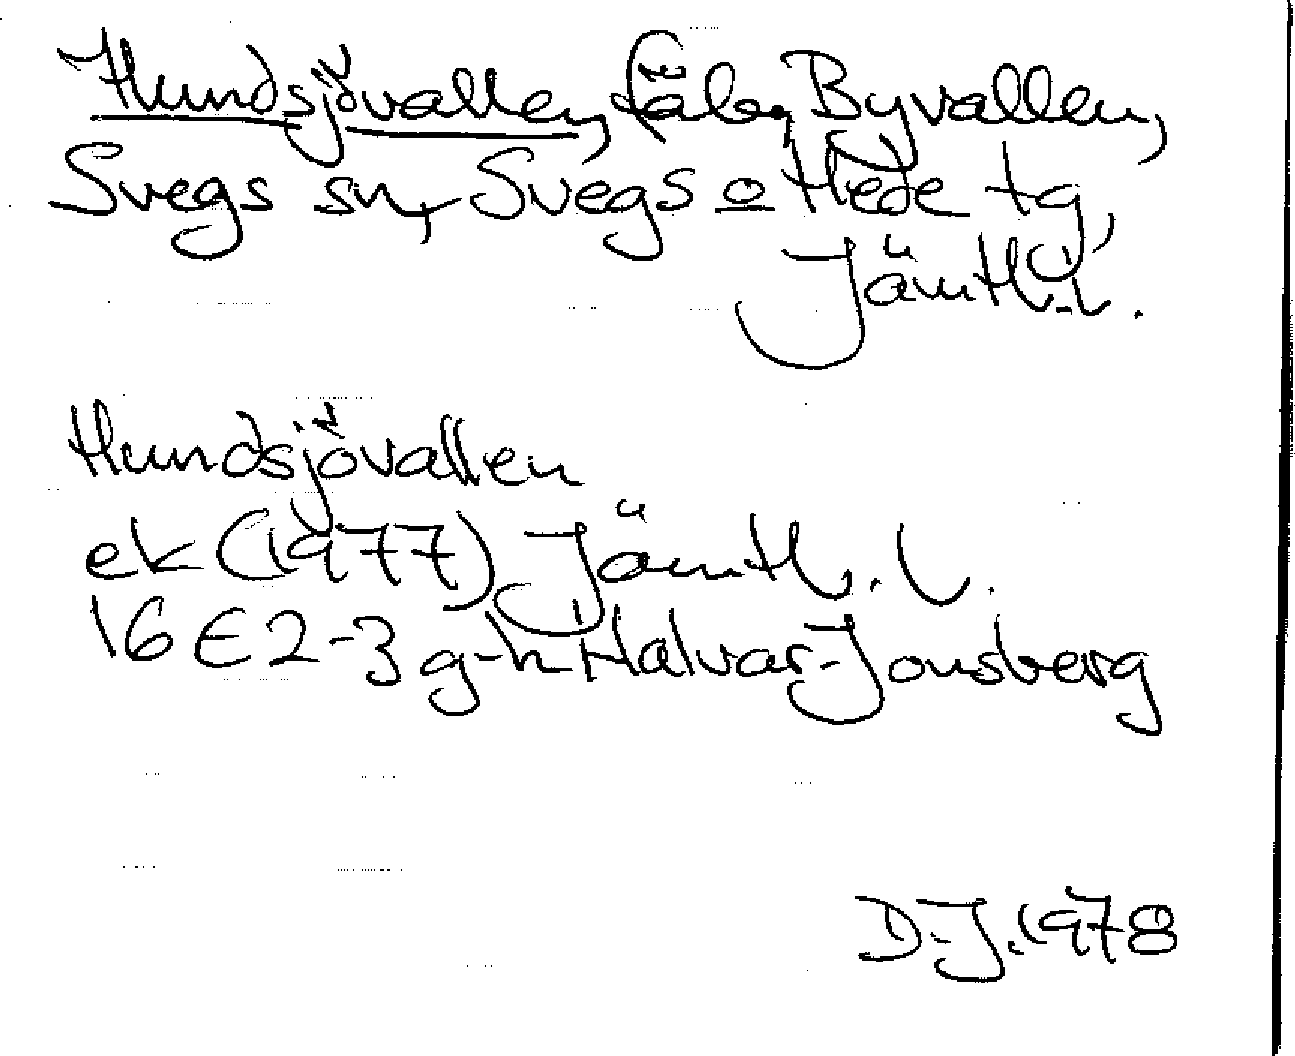 Hundsjövallen, fäb., Byvallen,
Svegs sn, Svegs o Hede tg,
Jämtl. l.
Hundsjövallen
ek (1977) Jämtl. l.
16 E 2-3 g-h Halvar-Jonsberg
D-J. 1978